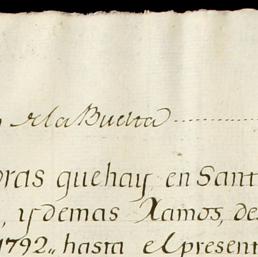 de la Buelta
oras que hay en Sant
, y demas Ramos, des
1792,, hasta el present